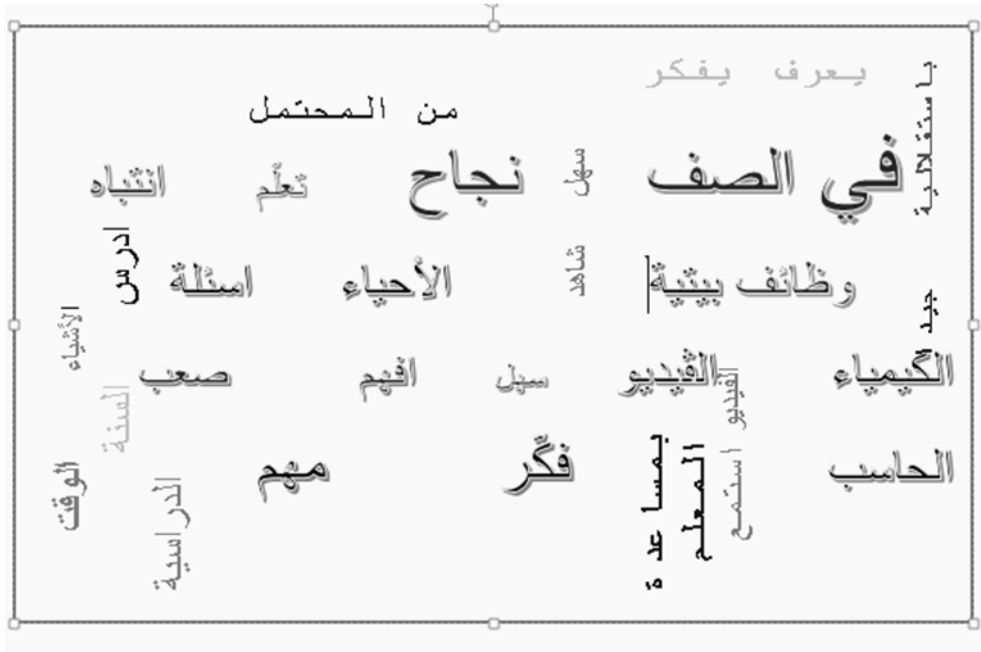 يعرف يفكر
باستقلالية
من المحتمل
في الصف
سهل
نجاح
تعلّم
انتباه
ادرس
وظائف بيتية
شاهد
الأحياء
اسئلة
جيدا
الأشياء
الكيمياء
الڤيديو
الفيديو
سهل
افهم
صعب
السنة
الحاسب
استمع
بمساعدة
المعلم
فكّر
مهم
الوقت
الدراسية